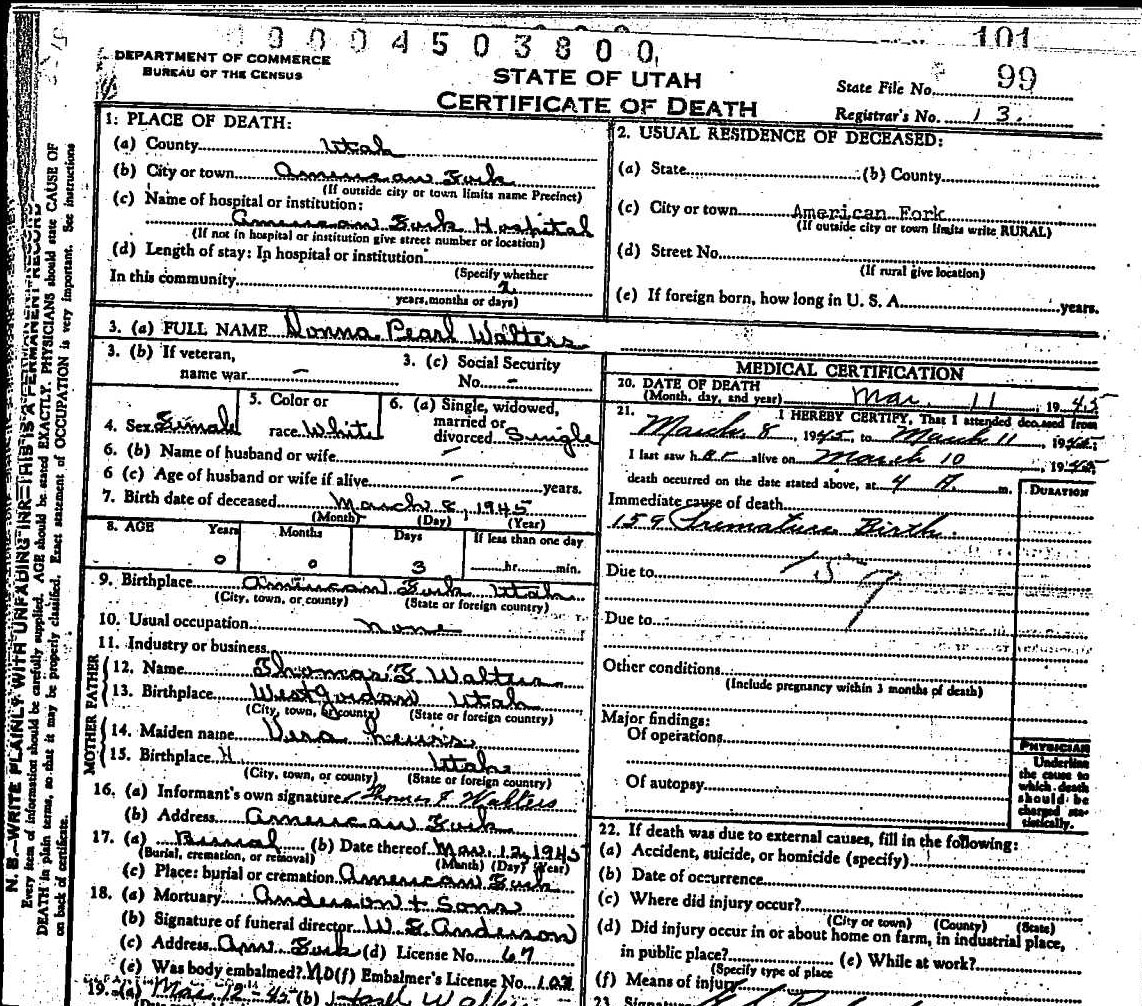 00004503800
101
DEPARTMENT OF COMMERCE
BUREAU OF THE CENSUS
STATE OF UTAH
CERTIFICATE OF DEATH
State File No. 99
Registrar's No. 13.
1: PLACE OF DEATH:
(a) County Utah
(b) City or town American Fork
(If outside city or town limits name Precinct)
(c) Name of hospital or institution:
American Fork Hospital
(If not in hospital or institution give street number or location)
(d) Length of stay: In hospital or institution
(Specify whether
In this community
years, months or days)
2. USUAL RESIDENCE OF DECEASED:
(a) State (b) County
(c) City or town American Fork
(If outside city or town limits write RURAL)
(d) Street No.
(If rural give location)
(e) If foreign born, how long in U. S. A. years.
3. (a) FULL NAME Donna Pearl Walters
3. (b) If veteran, name war -
3. (c) Social Security No. -
4. Sex Female
5. Color or race White
6. (a) Single, widowed, married or divorced Single
6. (b) Name of husband or wife -
6 (c) Age of husband or wife if alive - years.
7. Birth date of deceased March 8, 1945
(Month) (Day) (Year)
8. AGE Years Months Days If less than one day
0 0 3 hr. min.
9. Birthplace American Fork Utah
(City, town, or county) (State or foreign country)
10. Usual occupation none
11. Industry or business
FATHER
12. Name Thomas F Walters
13. Birthplace West Jordan Utah
(City, town, or county) (State or foreign country)
MOTHER
14. Maiden name Vera Lewis
15. Birthplace H Utah
(City, town, or county) (State or foreign country)
16. (a) Informant's own signature Thomas F Walters
(b) Address American Fork
17. (a) Burial (b) Date thereof Mar. 12, 1945
(Burial, cremation, or removal) (Month) (Day) (Year)
(c) Place: burial or cremation American Fork
18. (a) Mortuary Anderson + Sons
(b) Signature of funeral director W E Anderson
(c) Address Am. Fork (d) License No. 67
(e) Was body embalmed? No (f) Embalmer's License No.
19. (a) Mar 12 - 45 (b)
MEDICAL CERTIFICATION
20. DATE OF DEATH
(Month, day, and year) Mar. 11, 1945
21. I HEREBY CERTIFY, That I attended deceased from
March 8, 1945, to March 11, 1945;
I last saw her alive on March 10, 1945
death occurred on the date stated above, at 4 A. m.
DURATION
Immediate cause of death
159 Premature Birth.
Due to 159
Due to
Other conditions
(Include pregnancy within 3 months of death)
Major findings:
Of operations
Of autopsy
PHYSICIAN
Underline
the cause to
which death
should be
charged sta-
tistically.
22. If death was due to external causes, fill in the following:
(a) Accident, suicide, or homicide (specify)
(b) Date of occurrence
(c) Where did injury occur?
(City or town) (County) (State)
(d) Did injury occur in or about home on farm, in industrial place,
in public place? (e) While at work?
(Specify type of place
(f) Means of injury
23. Signature
N. B.—WRITE PLAINLY WITH UNFADING INK—THIS IS A PERMANENT RECORD
Every item of information should be carefully supplied. AGE should be stated EXACTLY. PHYSICIANS should state CAUSE OF
DEATH in plain terms, so that it may be properly classified. Exact statement of OCCUPATION is very important. See instructions
on back of certificate.